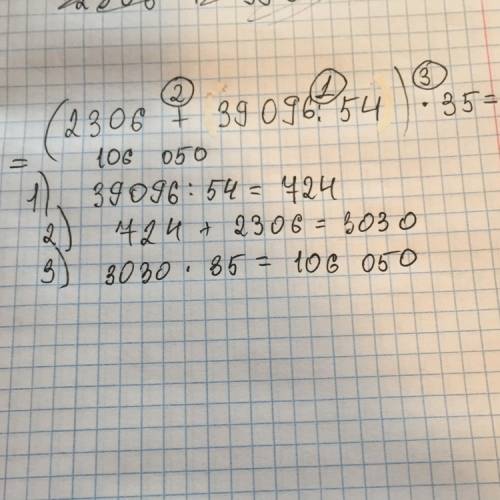 ② ① ③
(2306 + (39096 : 54)) · 35 =
= 106 050
1) 39096 : 54 = 724
2) 724 + 2306 = 3030
3) 3030 · 35 = 106 050